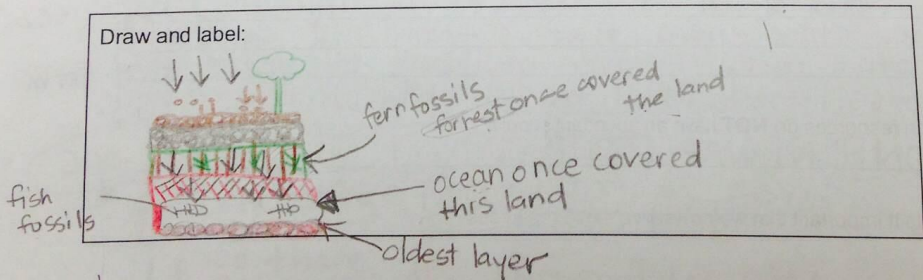 Draw and label:
fern fossils
forrest once covered
the land
ocean once covered
this land
fish
fossils
oldest layer